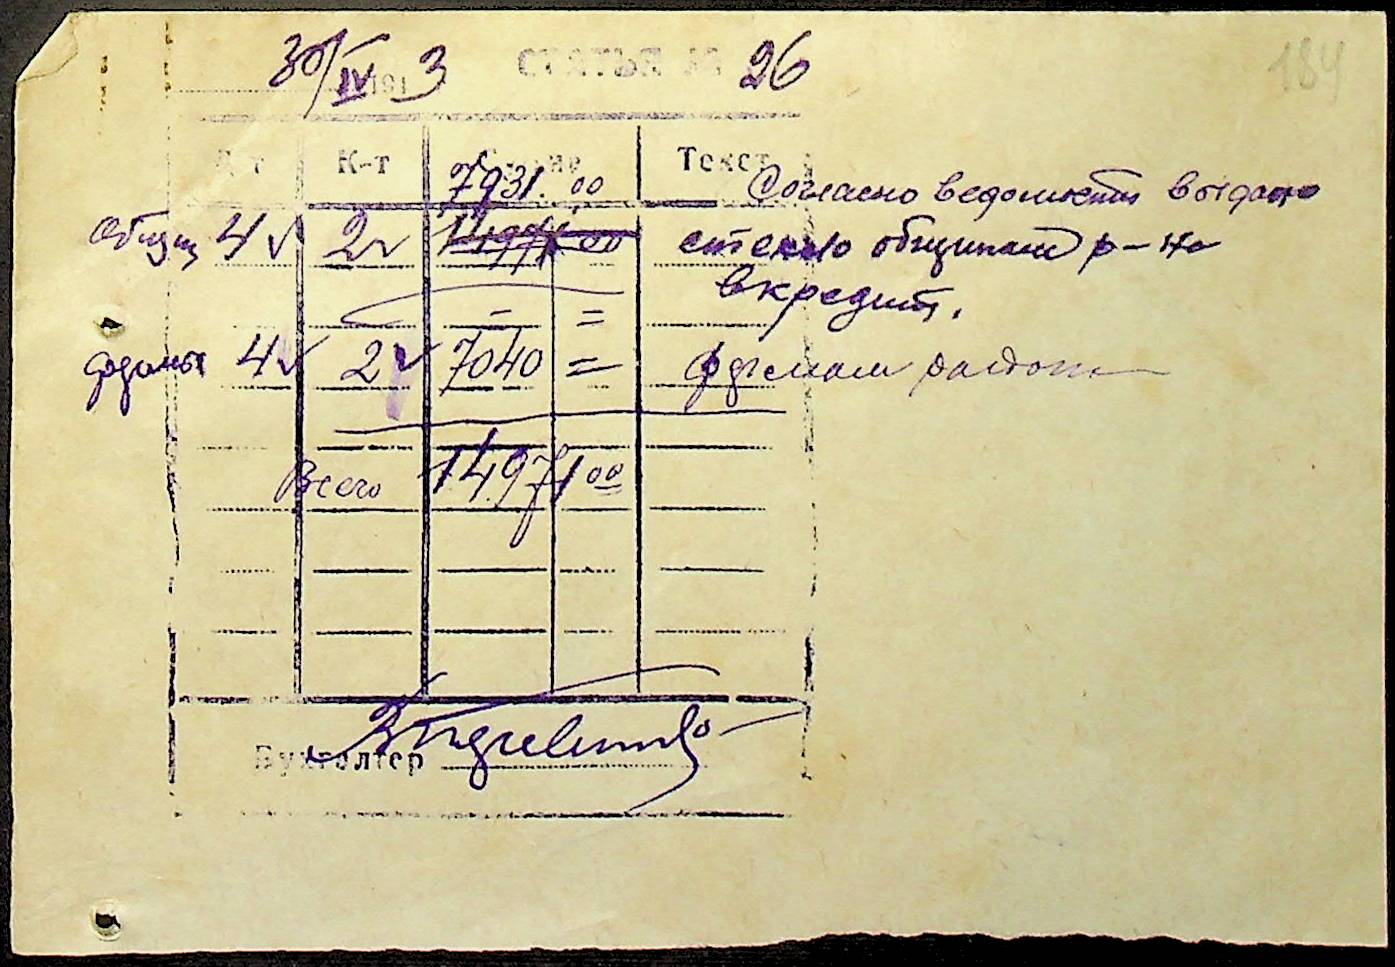 30/IV 191 3 СТАТЬЯ № 26
184
Д-т К-т Текст
7931.00 Согласно ведомости выдано
Общин 4 2 14971.00 стекло общинам р-на
в кредит.
- =
4 2 7040 = района
Всего 14971 00
Бухгалтер